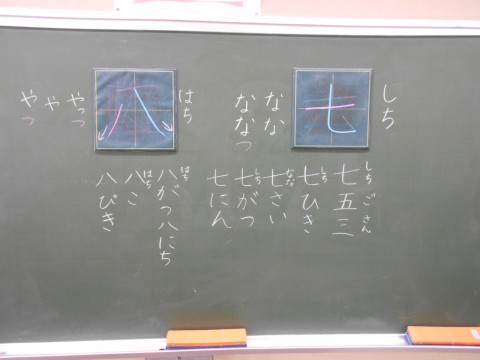 しち
七
なな
ななつ
七五三
しちごさん
七ひき
しち
七さい
なな
七がつ
しち
七にん
はち
八
やっつ
や
やつ
八がつ八にち
はち
八こ
はち
八ぴき